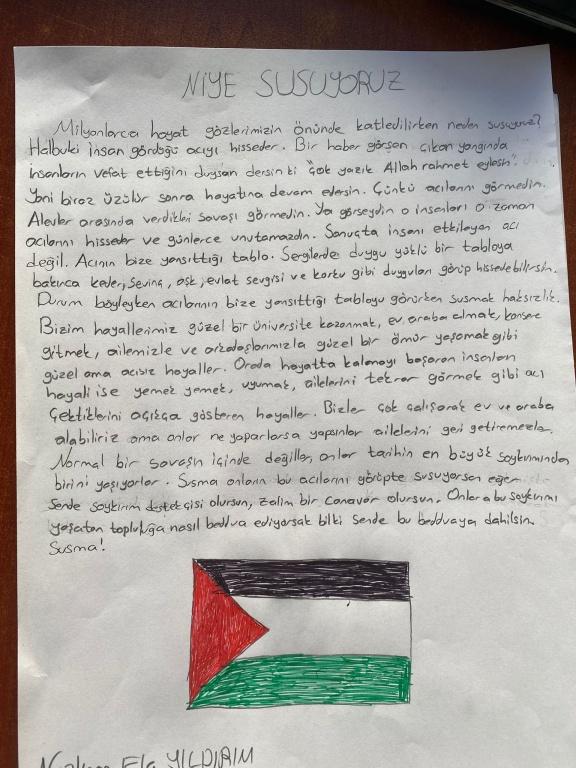 NİYE SUSUYORUZ
Milyonlarca hayat gözlerimizin önünde katledilirken neden susuyoruz?
Halbuki insan gördüğü acıyı hisseder. Bir haber görsen çıkan yangında
insanların vefat ettiğini duysan dersin ki "çok yazık Allah rahmet eylesin".
Yani biraz üzülür sonra hayatına devam edersin. Çünkü acılarını görmedin.
Alevler arasında verdikleri savaşı görmedin. Ya görseydin o insanları o zaman
acılarını hisseder ve günlerce unutamazdın. Sonuçta insanı etkileyen acı
değil. Acının bize yansıttığı tablo. Sergilerde duygu yüklü bir tabloya
bakınca keder, sevinç, aşk, evlat sevgisi ve korku gibi duyguları görüp hissedebilirsin.
Durum böyleyken acılarının bize yansıttığı tabloyu görürken susmak haksızlık.
Bizim hayallerimiz güzel bir üniversite kazanmak, ev araba almak, konsere
gitmek, ailemizle ve arkadaşlarımızla güzel bir ömür yaşamak gibi
güzel ama acısız hayaller. Orada hayatta kalmayı başaran insanların
hayali ise yemek yemek, uyumak, ailelerini tekrar görmek gibi acı
çektiklerini açıkça gösteren hayaller. Bizler çok çalışarak ev ve araba
alabiliriz ama onlar ne yaparlarsa yapsınlar ailelerini geri getiremezler.
Normal bir savaşın içinde değiller, onlar tarihin en büyük soykırımından
birini yaşıyorlar. Susma onların bu acılarını görüpte susuyorsan eğer
sende soykırım destekçisi olursun, zalim bir canavar olursun. Onlara bu soykırımı
yaşatan topluluğa nasıl beddua ediyorsak bilki sende bu bedduaya dahilsin.
Susma!
Ela YILDIRIM